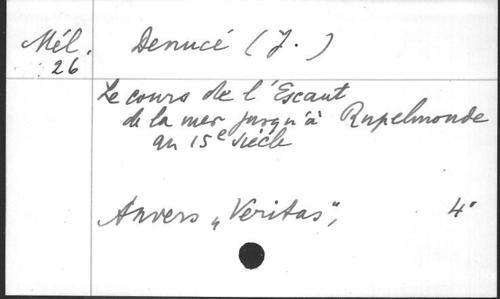 Mél.
26
Denucé (J.)
Le cours de l'Escaut
de la mer jusqu'à Rupelmonde
au 15e siècle
Anvers „Veritas", 4°